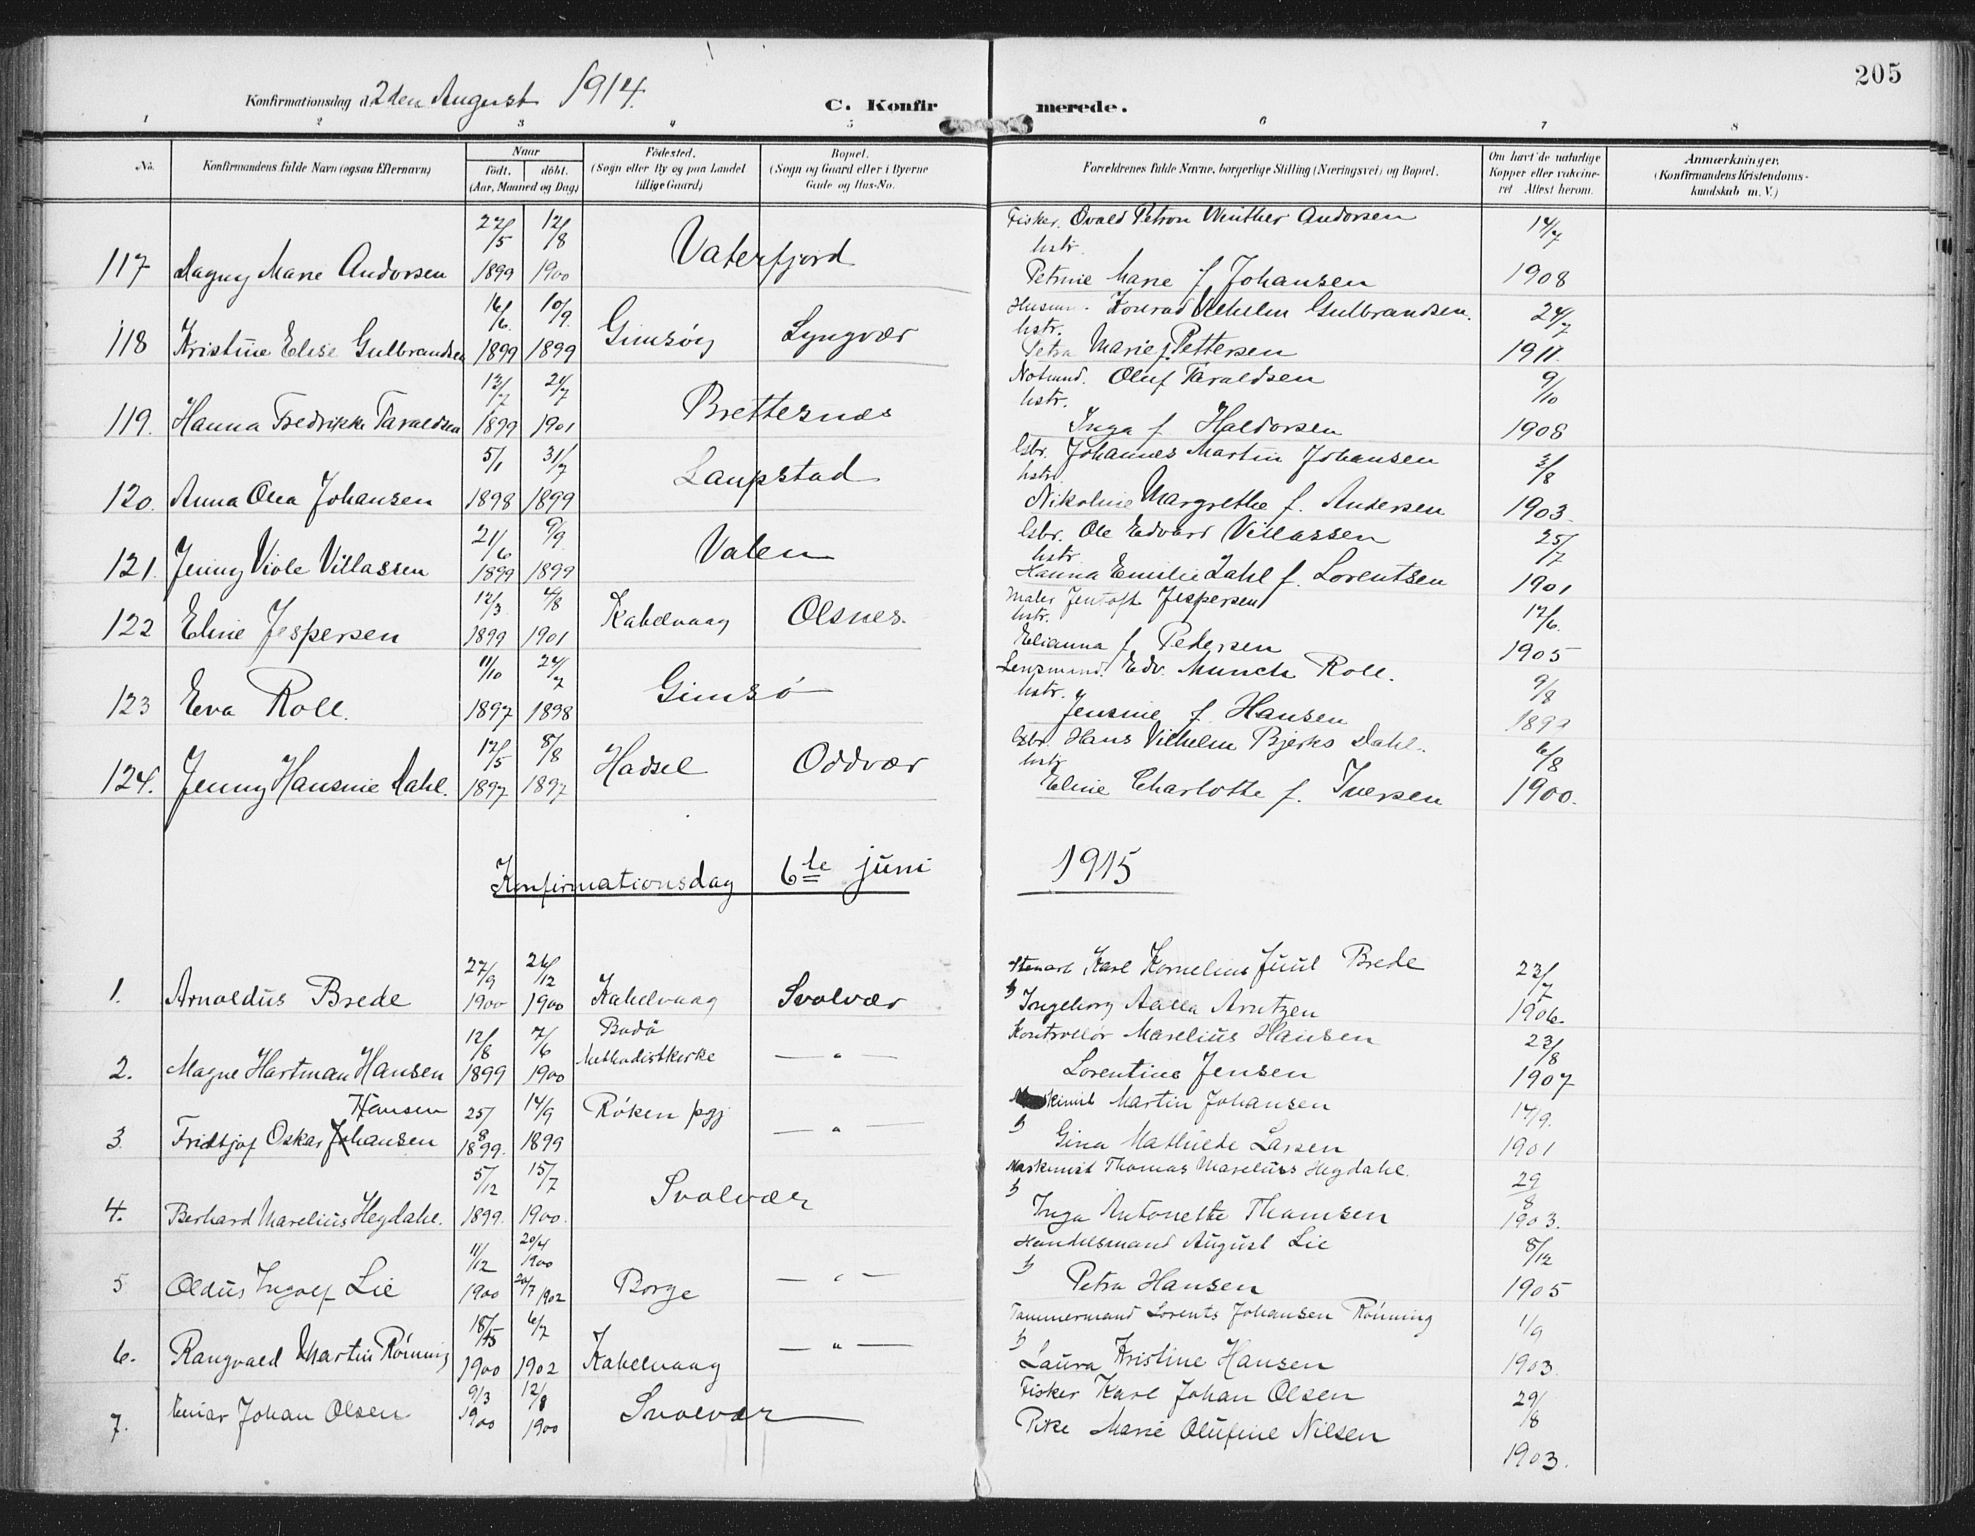 205
Konfirmationsdag d. 2den August 1914.
C. Konfirmerede.
1 2 3 4 5 6 7 8
No. Konfirmandens fulde Navn (ogsaa Efternavn) Naar født. døbt. (Aar, Maaned og Dag) Fødested. (Sogn eller By og paa Landet tillige Gaard) Bopæl. (Sogn og Gaard eller i Byerne Gade og Hus-No. Forældrenes fulde Navne, borgerlige Stilling (Næringsvei) og Bopæl. Om havt de naturlige Kopper eller vakcineret. Attest herom. Anmærkninger. (Konfirmandens Kristendomskundskab m. V.)
27/5 12/8 Fisker. Ovald Petron Winther Andorsen 14/7
hstr.
117 Dagny Marie Andorsen 1899 1900 Vaterfjord Petrine Marie f Johansen 1908
16/6 10/9. Husm. Konrad Vilhelm Gulbrandsen. 24/7
hstr.
118 Kristine Elise Gulbrandsen 1899 1899 Gimsøy Lyngvær Petra Marie f. Pettersen 1911.
13/7 21/7 Notmd. Oluf Taraldsen 9/10
hstr.
119. Hanna Fredrikke Taraldsen 1899 1901 Brettesnes Inga f Haldorsen 1908
5/1 31/7 Gbr. Johannes Martin Johansen 3/8
hstr.
120. Anna Olea Johansen 1898 1899 Laupstad Nikoline Margrethe f. Andersen 1903.
21/6 9/9. Gbr. Ole Edvard Villassen 25/7
hstr
121. Jenny Viole Villassen 1899 1899 Valen Hanna Emilie Dahl f. Lorentsen 1901
12/3. 4/8 Maler Jentoft Jespersen 12/6.
hstr.
122 Eline Jespersen 1899 1901 Kabelvaag Olsnes. Elianna f Pedersen 1905
11/10 24/7 Lensmand. Edv. Munch Roll. 9/8
hstr.
123 Eva Roll. 1897 1898 Gimsö Jensine f. Hansen
12/5 8/8 Gbr. Hans Vilhelm Bjerks Dahl. 6/8
hstr
124. Jenny Hansine Dahl. 1897 1897 Hadsel Oddvær Eline Charlotte f. Iversen 1900.
Konfirmationsdag 6te juni 1915
27/9 26/12 Stuart Karl Kornelius Juul Brede 23/7
1. Arnoldus Brede 1900 1900 Kabelvaag Svolvær Ingeborg Aalla Arntzen 1906.
12/8 7/6 Bodö Kontrollør Marelius Hansen 23/8
2. Magne Hartman Hansen 1899 1900 Methodistkirke — " — Lorentine Jensen 1907
Hansen 25/8 14/9 Røken pgj Martin Johansen 14/9.
3. Fridtjof Oskar Johansen 1899. 1899 — " — Gina Mathilde Larsen 1901
5/12 15/7 Maskinist Thomas Marelius Hegdahl. 29/8
4. Berhard Marelius Hegdahl. 1899. 1900. Svolvær Inga Antonette Thomsen 1903.
11/12 20/4 1900 Handelsmand August Lie 8/12
5 Oldus Ingolf Lie 1900 20/7 1902 Borge — " — Petra Hansen 1905
18/ 6/7 Tømmermand Lorents Johansen Rönning 1/9
6. Rangvald Martin Rönning 1900 1902 Kabelvaag — " — Laura Kristine Hansen 1903.
9/3 12/8 Fisker Karl Johan Olsen 29/8
7. Einar Johan Olsen 1900 1900 Svolvær Pike Marie Olufine Nilsen
1903.